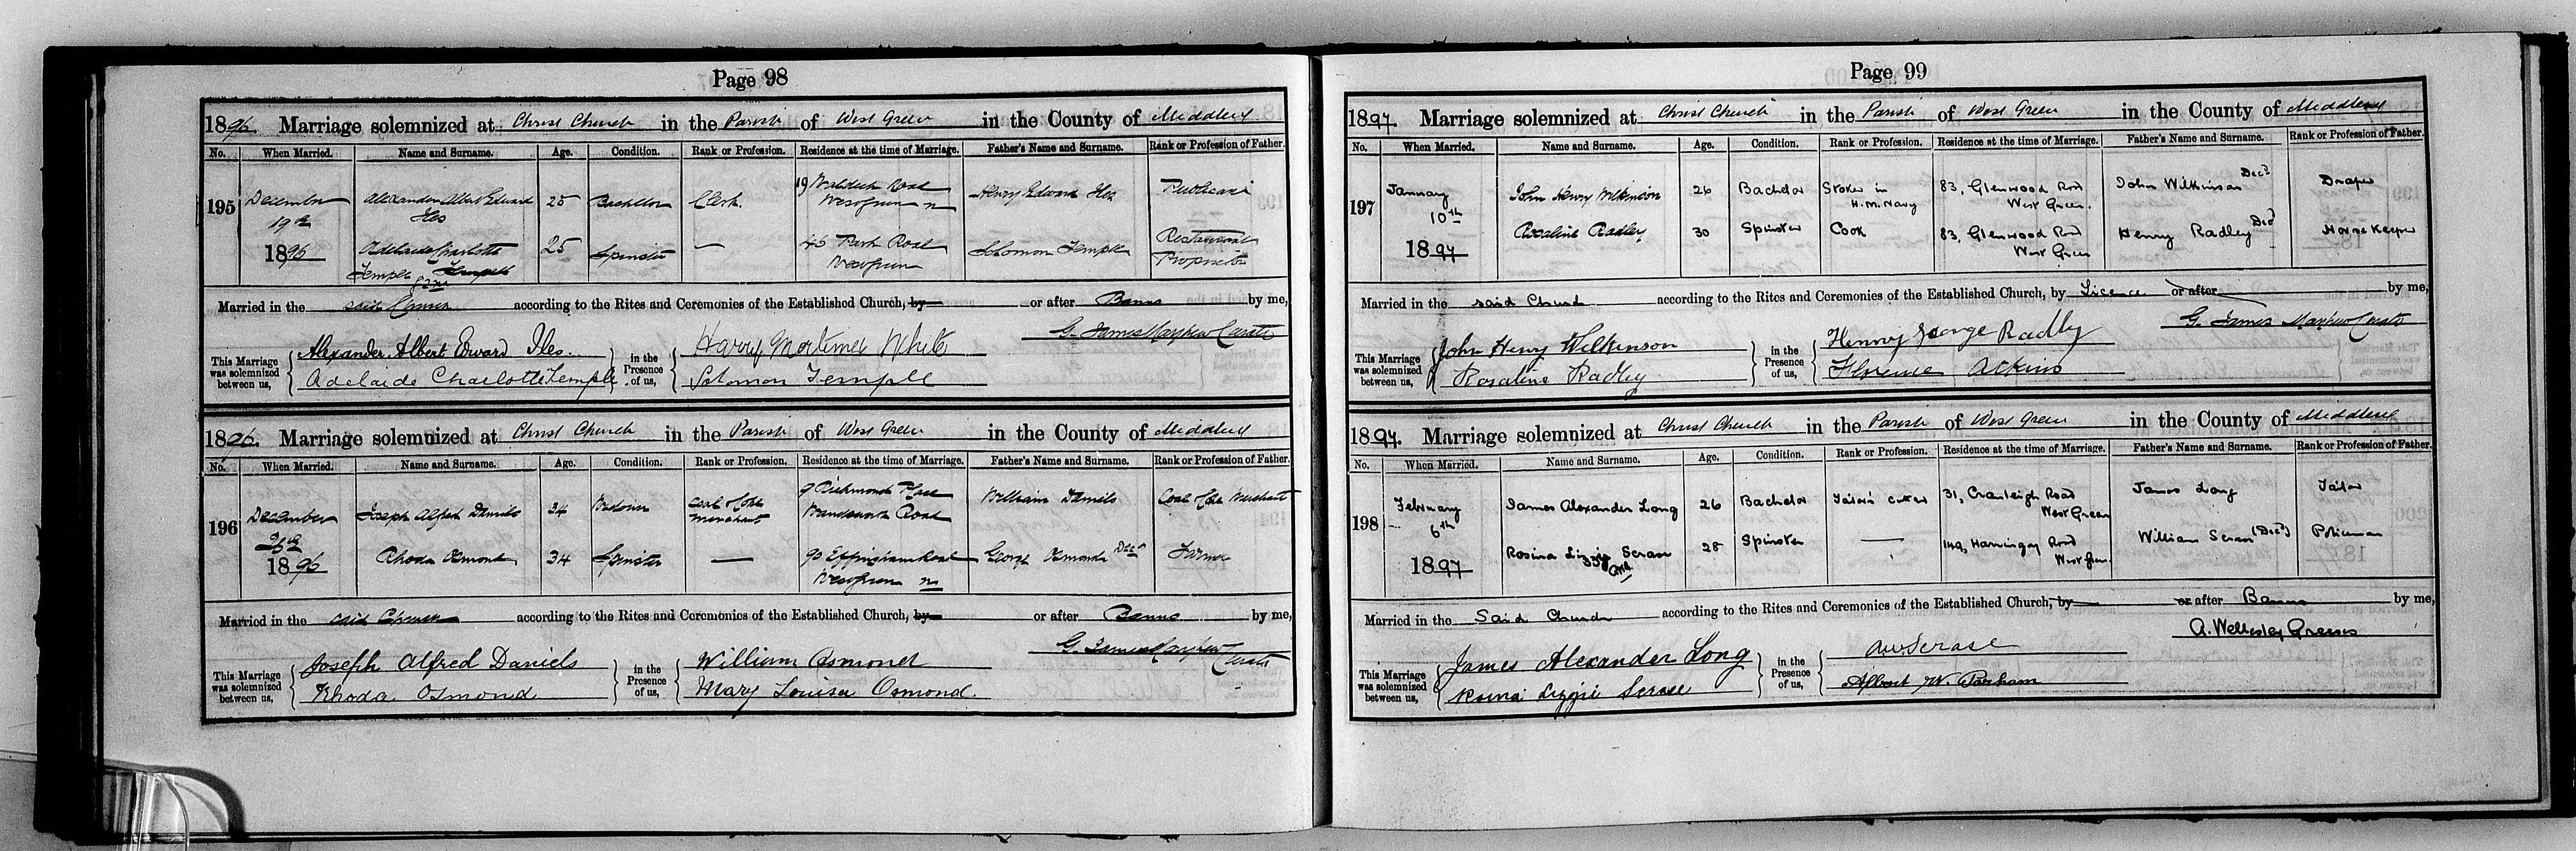 Page 98
1896. Marriage solemnized at Christ Church in the Parish of West Green in the County of Middlesex
No. When Married. Name and Surname. Age. Condition. Rank or Profession. Residence at the time of Marriage. Father's Name and Surname. Rank or Profession of Father.
195 December 19th 1896
Alexander Albert Edward Iles 25 Bachelor Clerk. 19 Road Westgreen n Henry Edward Iles Publican
Adelaide Charlotte Temple 25 Spinster — 45 Park Road Westgreen Solomon Temple Restaurant Proprietor
Married in the said Church according to the Rites and Ceremonies of the Established Church, by or after Banns by me,
G. James Mayhew Curate
This Marriage was solemnized between us, Alexander Albert Edward Iles. in the Presence of us, Harry Mortimer White
Adelaide Charlotte Temple Solomon Temple
1896. Marriage solemnized at Christ Church in the Parish of West Green in the County of Middlesex
No. When Married. Name and Surname. Age. Condition. Rank or Profession. Residence at the time of Marriage. Father's Name and Surname. Rank or Profession of Father.
196 December 26th 1896
Joseph Alfred Daniels 34 Widower Coal & Coke Merchant 9 Richmond Place Wandsworth Road William Daniels Coal & Coke Merchant
Rhoda Osmond 34 Spinster — 90 Effingham Road Westgreen n George Osmond Decd Farmer
Married in the said Church according to the Rites and Ceremonies of the Established Church, by or after Banns by me,
G. James Mayhew Curate
This Marriage was solemnized between us, Joseph Alfred Daniels in the Presence of us, William Osmond
Rhoda Osmond Mary Louisa Osmond.
Page 99
1897. Marriage solemnized at Christ Church in the Parish of West Green in the County of Middlesex
No. When Married. Name and Surname. Age. Condition. Rank or Profession. Residence at the time of Marriage. Father's Name and Surname. Rank or Profession of Father.
197 January 10th 1897
John Henry Wilkinson 26 Bachelor Stoker in H.M. Navy 83, Glenwood Road West Green. John Wilkinson Decd Draper
Rosaline Radley 30 Spinster Cook 83, Glenwood Road West Green Henry Radley Decd Horse Keeper
Married in the said Church according to the Rites and Ceremonies of the Established Church, by Licence or after by me,
G. James Mayhew Curate
This Marriage was solemnized between us, John Henry Wilkinson in the Presence of us, Henry George Radly
Rosaline Radley Florence Atkins
1897. Marriage solemnized at Christ Church in the Parish of West Green in the County of Middlesex
No. When Married. Name and Surname. Age. Condition. Rank or Profession. Residence at the time of Marriage. Father's Name and Surname. Rank or Profession of Father.
198 February 6th 1897
James Alexander Long 26 Bachelor Tailor's Cutter 31, Cranleigh Road West Green James Long Tailor
Rosina Lizzie Scrase 28 Spinster — 149, Harringay Road West Green William Scrase (Decd) Policeman
Married in the Said Church according to the Rites and Ceremonies of the Established Church, by or after Banns by me,
A. Wellesley Greeves
This Marriage was solemnized between us, James Alexander Long in the Presence of us, AW Scrase
Rosina Lizzie Scrase Albert W. Parham